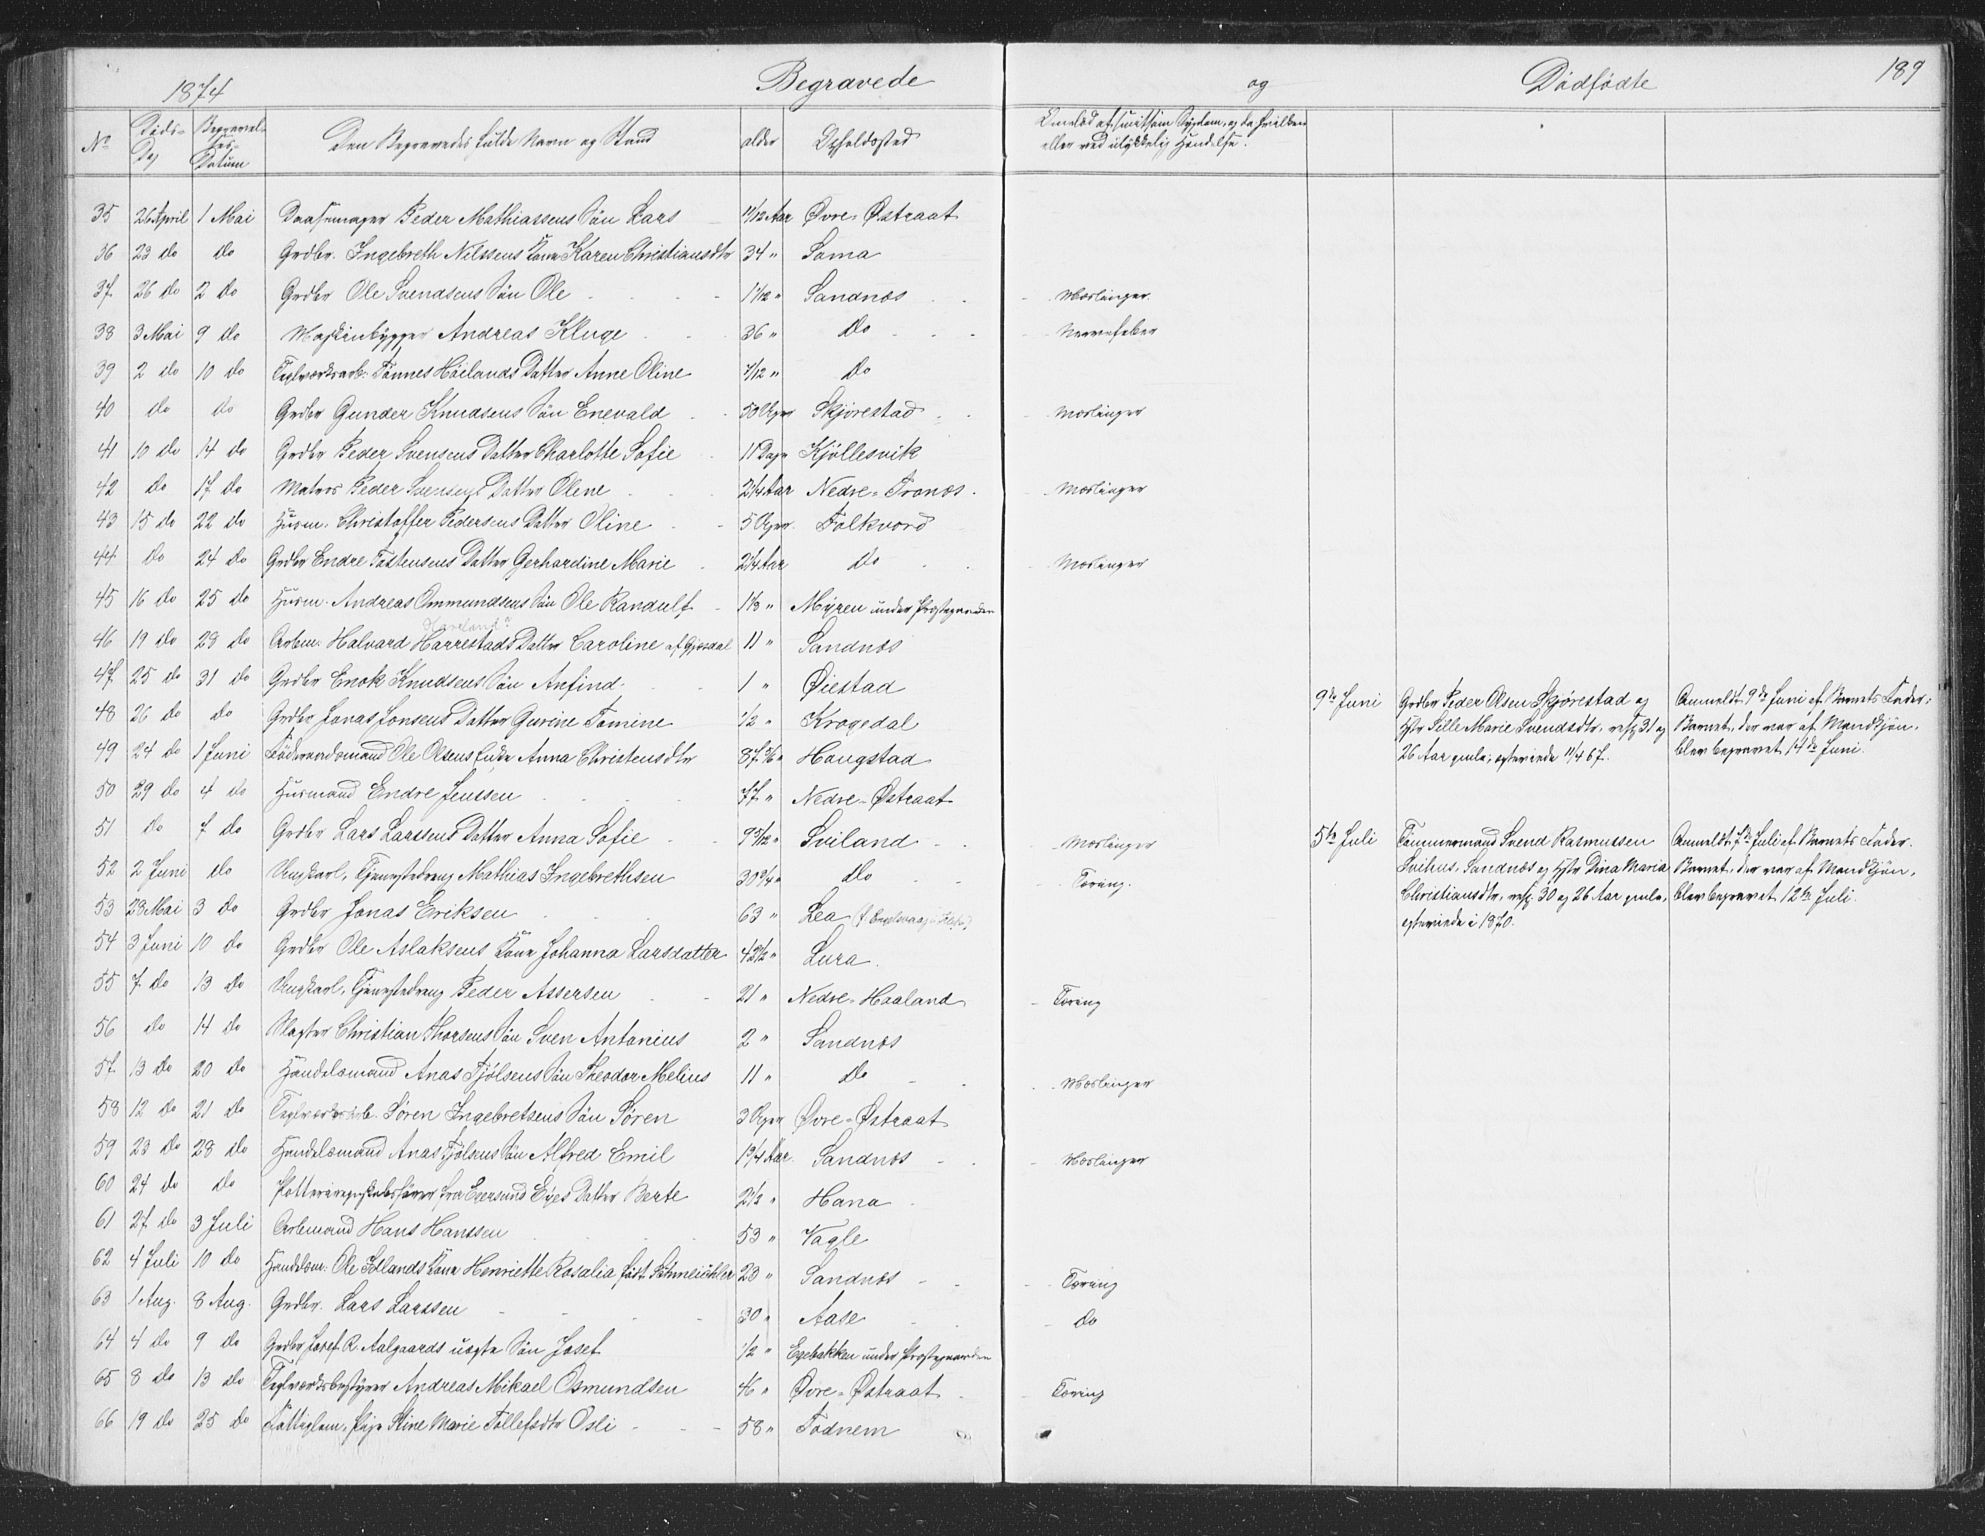 1874 Begravede og Dødfødte 189
No Døds-Dag Begravelses-Datum Den Begravedes fulde Navn og Stand alder Opholdssted Omkred af smitsom Sygdom, og da hvilken eller ved ulykkelig Hendelse.
35 26 April 1 Mai Daasemager Peder Mathiassens Søn Lars 11/12 Aar Øvre-Østraat
36 23 do do Grdbr. Ingebreth Nilssens Kone Karen Christiansdtr 34 " Soma
37 26 do 2 do Grdbr Ole Svendsens Søn Ole 1 1/12 " Sandnæs Mæslinger.
38 3 Mai 9 do Maskinbygger Andreas Kluge 36 " do Nervefeber
39 2 do 10 do Teglværksarb: Tønnes Høilands Datter Anne Oline 7/12 " do
40 do do Grdbr Gunder Knudsens Søn Enevald 50 Uger Skjørestad Mæslinger
41 10 do 14 do Grdbr Peder Svensens Datter Charlotte Sofie 11 Dage Kjøllesvik
42 do 17 do Matros Peder Svensens Datter Olene 2 1/4 Aar Nedre-Tronæs Mæslinger
43 15 do 22 do Husm. Christoffer Pedersens Datter Oline 5 Uger Folkvord
44 do 24 do Grdbr Endre Tostensens Datter Gerhardine Marie 2 1/4 Aar do Mæslinger
45 16 do 25 do Husm. Andreas Ommundsens Søn Ole Randulf 1 1/3 " Myren under Præstegaarden
46 19 do 28 do Arbm. Halvard Harrestads Datter Caroline af Gjesdal 11 " Sandnæs
47 25 do 31 do Grdbr Enok Knudsens Søn Anfind 1 " Øiestad
48 26 do do Grdbr Jonas Jonsens Datter Gurine Tomine 1/2 " Krogedal
49 24 do 1 Juni Føderaadsmand Ole Olsens Enke Anna Christensdtr 87 " Haugstad
50 29 do 4 do Husmand Endre Jenssen 77 " Nedre-Østraat
51 do 7 do Grdbr Lars Larssens Datter Anna Sofie 9 5/12 " Sviland Mæslinger
52 2 Juni do Ungkarl, Tjenestedreng Mathias Ingebrethsen 30 3/4 " do Tæring.
53 28 Mai 3 do Grdbr Jonas Eriksen 63 " Lea
54 3 Juni 10 do Grdbr Ole Aslaksens Kone Johanna Larsdatter 43 1/2 " Lura.
55 7 do 13 do Ungkarl, Tjenestedreng Peder Assersen 21 " Nedre-Haaland Tæring
56 do 14 do Slagter Christian Thorsens Søn Sven Antonius 2 " Sandnæs
57 13 do 20 do Handelsmand Anas Tjølsens Søn Theodor Melius 11 " do Mæslinger
58 12 do 21 do Teglværksarb. Søren Ingebretsens Søn Søren 3 Uger Øvre-Østraat
59 23 do 28 do Handelsmand Anas Tjølsens Søn Alfred Emil 1 3/4 Aar. Sandnæs Mæslinger
60 24 do do fra Egersund Eyes Datter Berte 2 1/2 " Hana
61 27 do 3 Juli Arbmand Hans Hanssen 53 " Vagle
62 4 Juli 10 do Handelsm: Ole Idlands Kone Henriette Rosalia født Schmeichler 23 " Sandnæs Tæring
63 1 Aug. 8 Aug. Grdbr. Lars Larssen 30 " Aase do
64 4 do 9 do Grdbr Josef R. Aalgaards uægte Søn Josef 1/2 " Egebakken under Præstegaarden
65 8 do 13 do Teglværksbestyrer Andreas Mikael Osmundsen 46 " Øvre-Østraat Tæring
66 19 do 25 do Fattiglem, Pige Stine Marie Tollefsdtr Osli 58 " Todnem
9de Juni Grdbr Peder Olsen Skjørestad og Anmeldt 9de Juni af Barnets Fader:
Hstr Sille Marie Svendsdtr, resp. 31 og Barnet, der var af Mandkjøn,
26 Aar gamle; egteviede 11/4 67. blev begravet 14de Juni.
5te Juli Tømmermand Svend Rasmussen Anmeldt 7de Juli af Barnets Fader.
Svihus, Sandnæs og Hstr Dina Maria Barnet, der var af Mandkjøn,
Christiansdtr, resp. 30 og 26 Aar gamle, blev begravet 12te Juli.
egteviede i 1870.